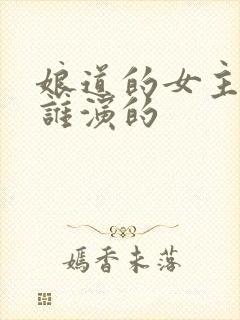 娘道的女主
誰演的
媽香未落